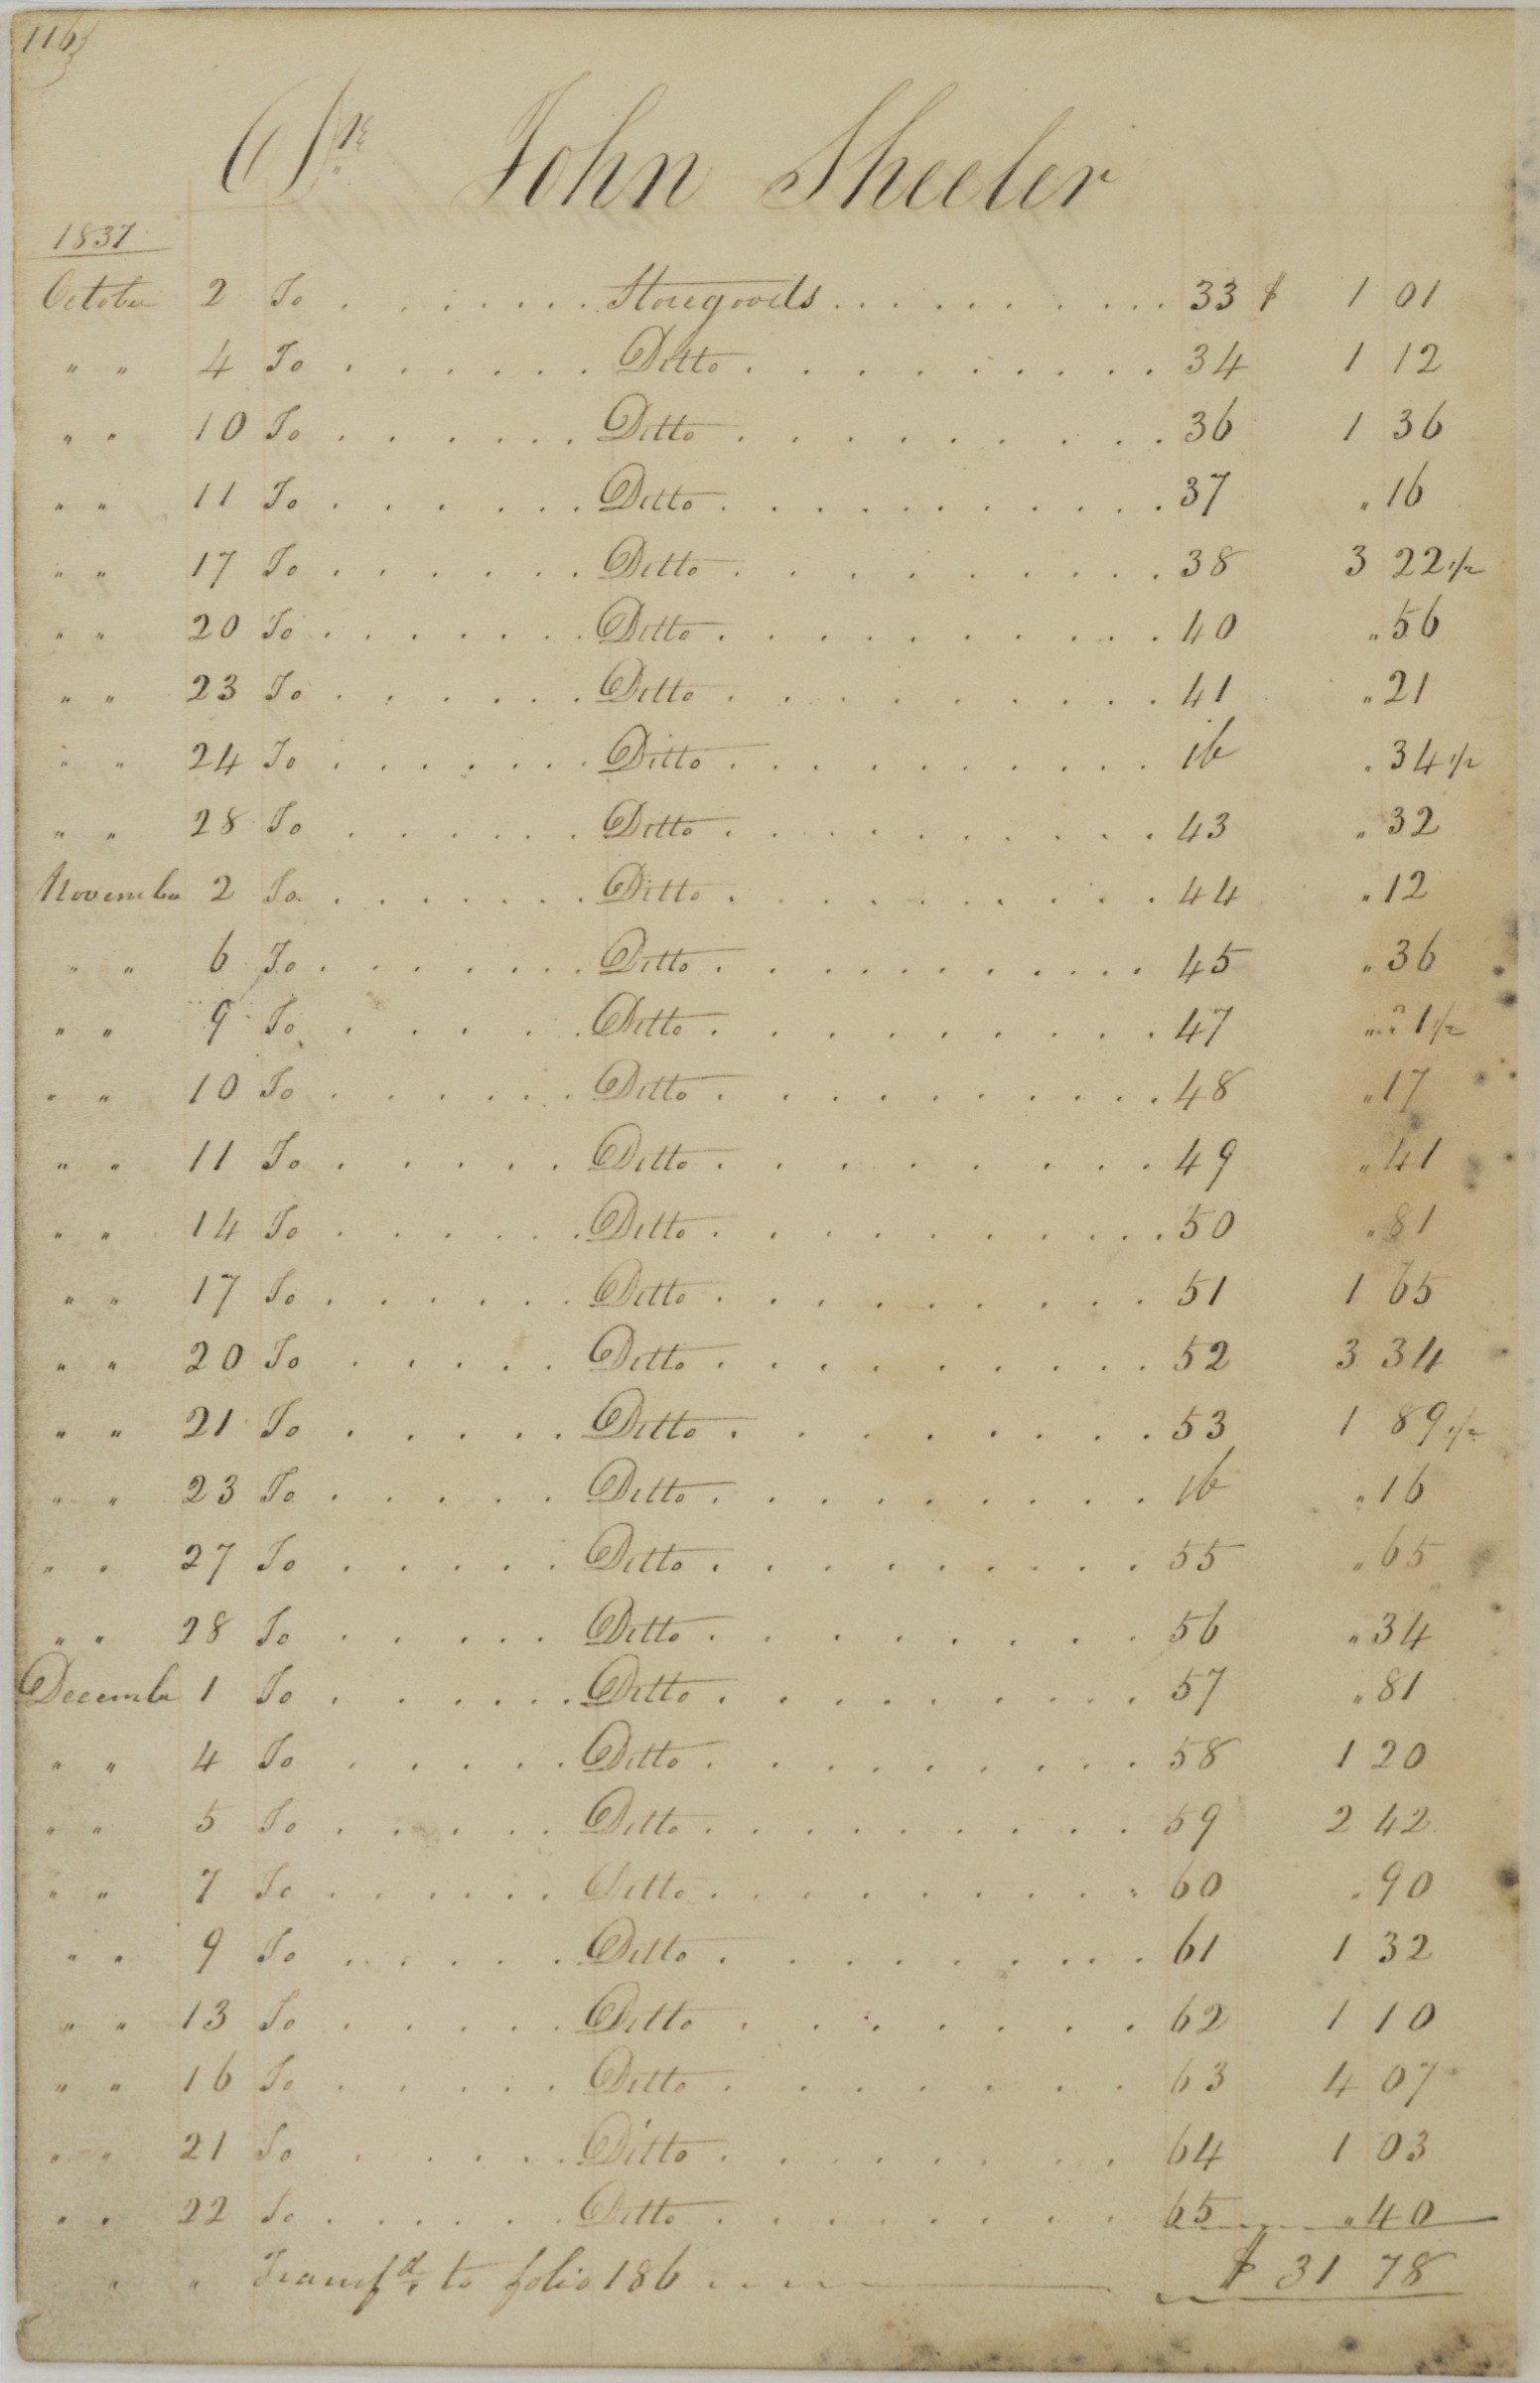 116
Dr John Sheeler
1837
October 2 To . . . . . . . Storegoods . . . . . . . . . . 33 $ 1 01
" " 4 To . . . . . . Ditto . . . . . . . . . . 34 1 12
" " 10 To . . . . . . Ditto . . . . . . . . . . 36 1 36
" " 11 To . . . . . . Ditto . . . . . . . . . . 37 " 16
" " 17 To . . . . . . Ditto . . . . . . . . . . 38 3 22 1/2
" " 20 To . . . . . . Ditto . . . . . . . . . . 40 " 56
" " 23 To . . . . . . Ditto . . . . . . . . . . 41 " 21
" " 24 To . . . . . . Ditto . . . . . . . . . . ib " 34 1/2
" " 28 To . . . . . . Ditto . . . . . . . . . . 43 " 32
November 2 To . . . . . . Ditto . . . . . . . . . . 44 " 12
" " 6 To . . . . . . Ditto . . . . . . . . . . 45 " 36
" " 9 To . . . . . . Ditto . . . . . . . . . . 47 " " 1 1/2
" " 10 To . . . . . . Ditto . . . . . . . . . . 48 " 17
" " 11 To . . . . . Ditto . . . . . . . . . 49 " 41
" " 14 To . . . . . . Ditto . . . . . . . . . . 50 " 81
" " 17 To . . . . . . Ditto . . . . . . . . . 51 1 65
" " 20 To . . . . . Ditto . . . . . . . . . 52 3 34
" " 21 To . . . . . Ditto . . . . . . . . 53 1 89 1/2
" " 23 To . . . . . Ditto . . . . . . . . . ib " 16
" " 27 To . . . . . Ditto . . . . . . . . . 55 " 65
" " 28 To . . . . . Ditto . . . . . . . . . 56 " 34
December 1 To . . . . . . Ditto . . . . . . . . . 57 " 81
" " 4 To . . . . . Ditto . . . . . . . . . 58 1 20
" " 5 To . . . . . Ditto . . . . . . . . . 59 2 42
" " 7 To . . . . . . Ditto . . . . . . . . . 60 " 90
" " 9 To . . . . . Ditto . . . . . . . . . 61 1 32
" " 13 To . . . . . Ditto . . . . . . . 62 1 10
" " 16 To . . . . . Ditto . . . . . . . 63 4 07
" " 21 To . . . . . Ditto . . . . . . . . 64 1 03
" " 22 To . . . . . . Ditto . . . . . . . . 65 " 40
" " Transfd. to folio 186 . . . . $ 31 78